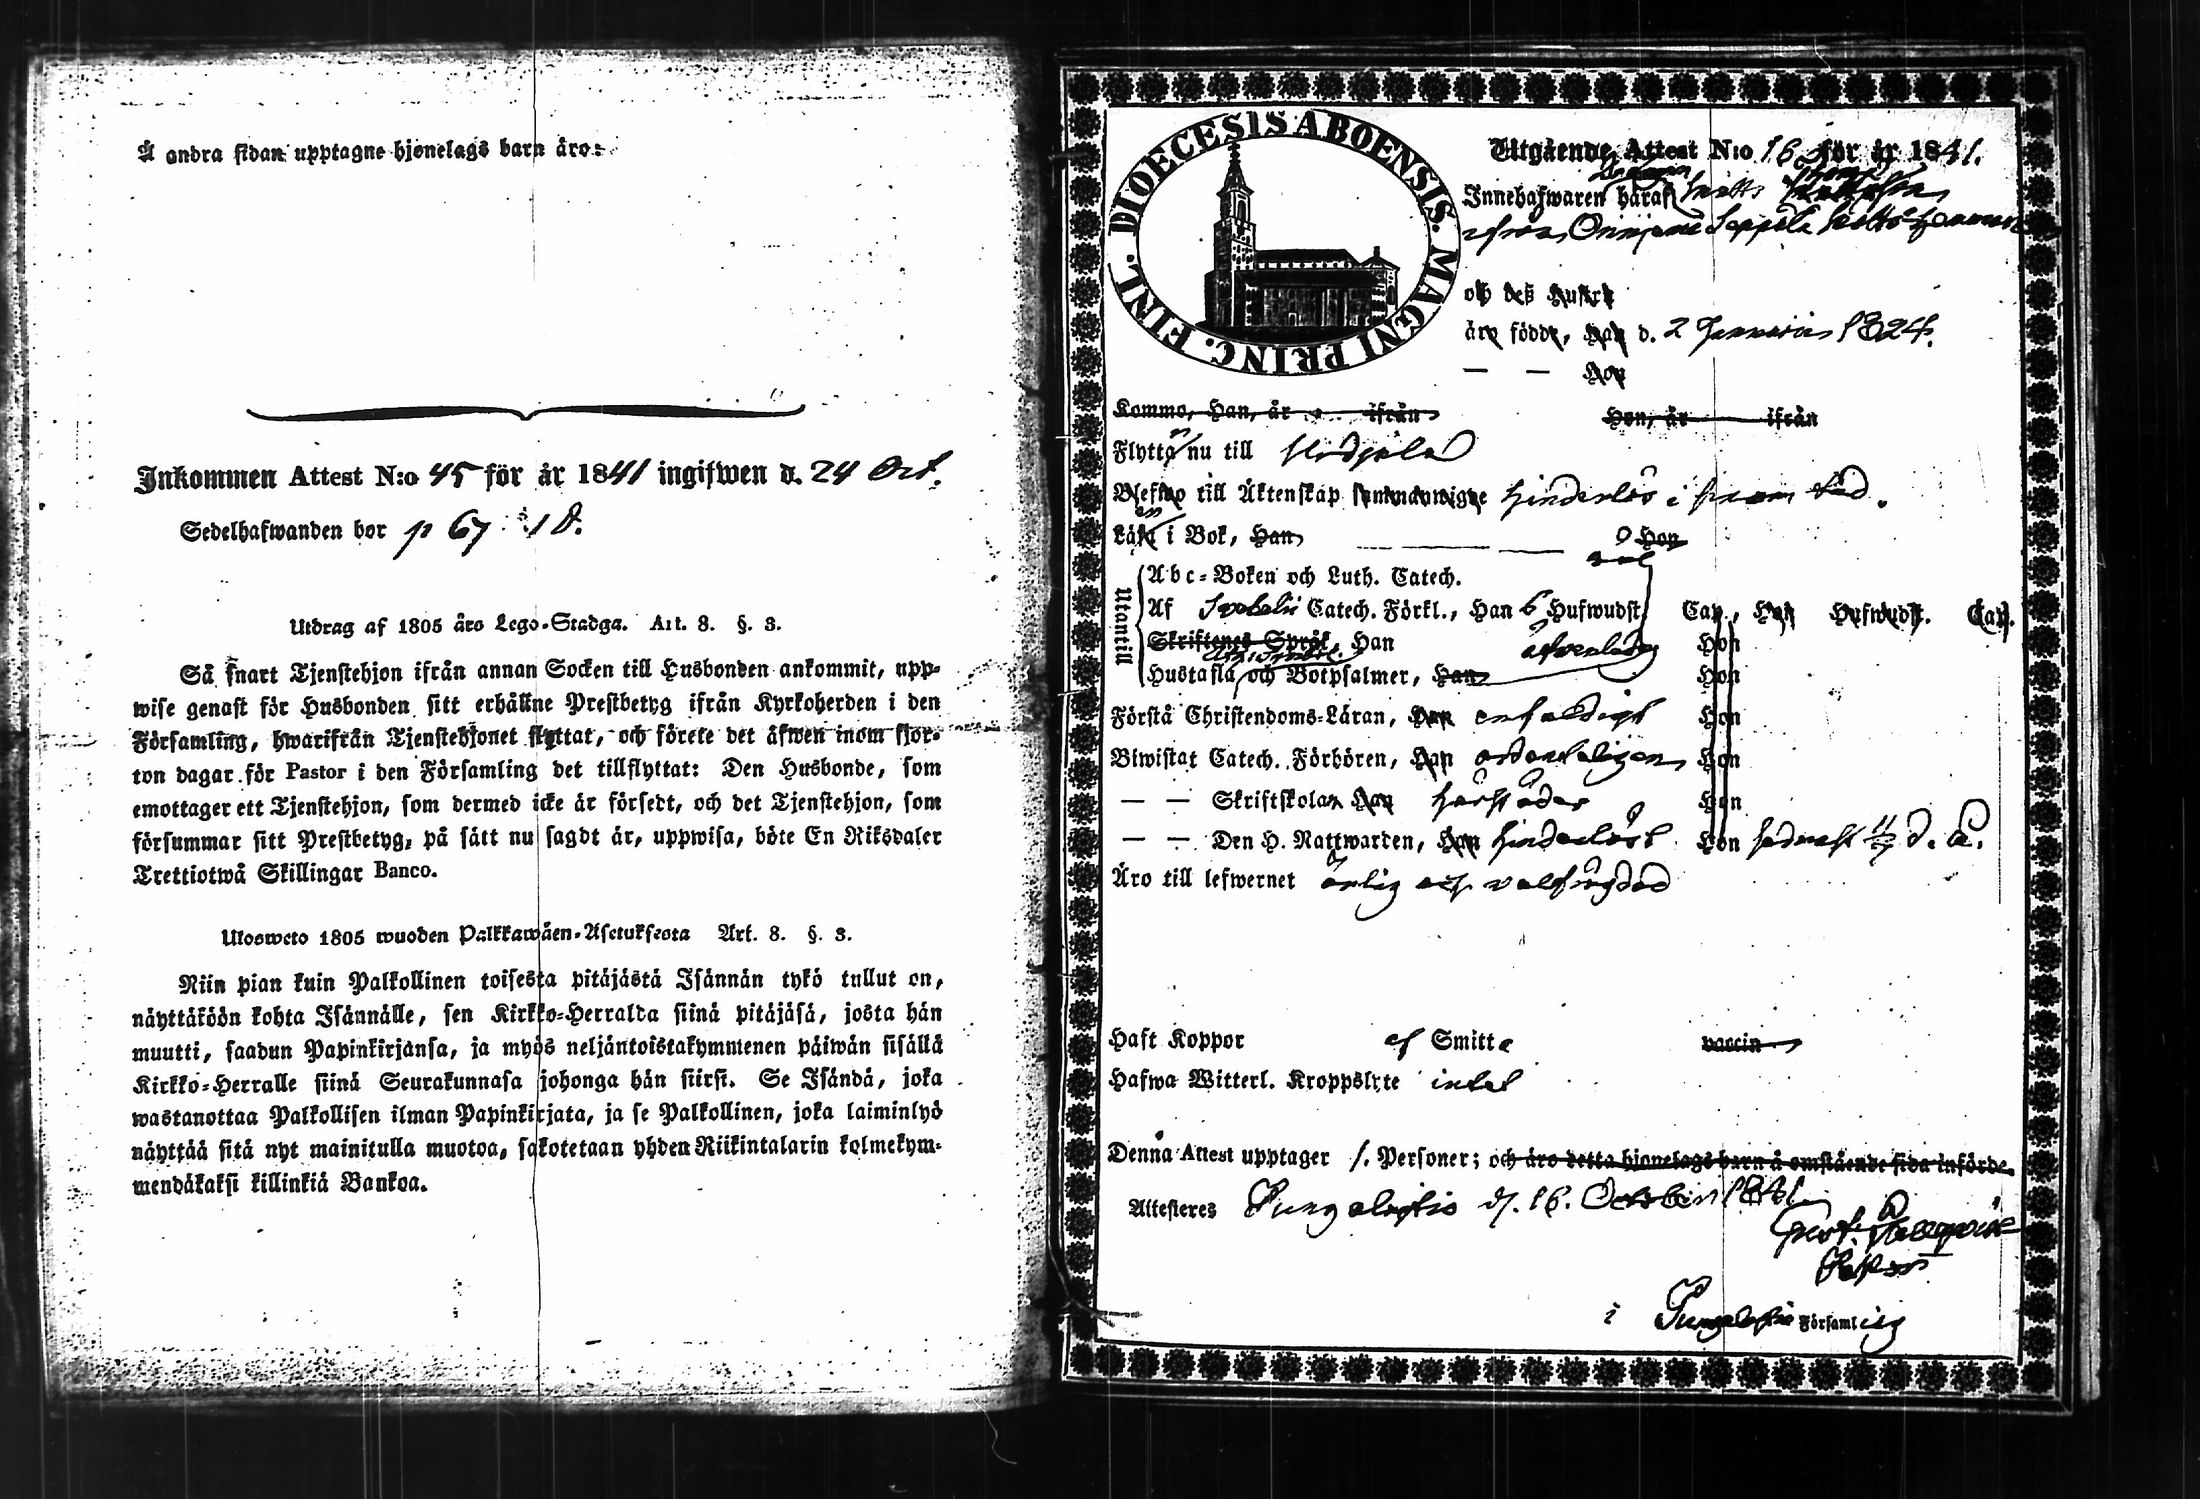 Å andra sidan upptagne hjonelags barn äro:
Inkommen Attest N:o 45 för år 1841 ingifwen d. 24 Oct.
Sedelhafwanden bor p 67
Utdrag af 1805 års Lego-Stadga. Art. 8. §. 3.
Så snart Tjenstehjon ifrån annan Socken till Husbonden ankommit, upp-
wise genast för Husbonden sitt erhållne Prestbetyg ifrån Kyrkoherden i den
Församling, hwarifrån Tjenstehjonet flyttat, och förete det äfwen inom fjor-
ton dagar för Pastor i den Församling det tillflyttat: Den Husbonde, som
emottager ett Tjenstehjon, som dermed icke är försedt, och det Tjenstehjon, som
försummar sitt Prestbetyg, på sätt nu sagdt är, uppwisa, böte En Riksdaler
Trettiotwå Skillingar Banco.
Ulosweto 1805 wuoden Palkkawäen-Asetuksesta Art. 8. §. 3.
Niin pian kuin Palkollinen toisesta pitäjästä Isännän tykö tullut on,
näyttäköön kohta Isännälle, sen Kirkko-Herralda siinä pitäjäsä, josta hän
muutti, saadun Papinkirjansa, ja myös neljäntoistakymmenen päiwän sisällä
Kirkko-Herralle siinä Seurakunnasa johonga hän siirsi. Se Isändä, joka
wastanottaa Palkollisen ilman Papinkirjata, ja se Palkollinen, joka laiminlyö
näyttää sitä nyt mainitulla muotoa, sakotetaan yhden Riikintalarin kolmekym-
mendäkaksi killinkiä Bankoa.
DIOECESIS ABOENSIS. MAGNI PRINC. FINL.
Utgående Attest N:o 16 för år 1841.
Innehafwaren häraf
ifrån Seppälä
och dess Hustru
äro födde, Han d. 2 Januarii 1824.
— — Hon
Kommo, Han, år ifrån Hon, år ifrån
Flytta nu till
Blefwo till Äktenskap sammanwigne hinderlös i
Läsa i Bok, Han Hon
Utantill
Abc-Boken och Luth. Catech.
Af Svebelii Catech. Förkl., Han 6 Hufwudst. Cap., Hon Hufwudst. Cap.
Skriftenes Språk, Han äfvenledes Hon
Hustafla och Botpsalmer, Han Hon
Förstå Christendoms-Läran, Han enfaldigt Hon
Biwistat Catech. Förhören, Han ordenteligen Hon
— — Skriftskolan Han härstädes Hon
— — Den H. Nattwarden, Han hinderlöst Hon sednast d. å.
Äro till lefwernet ärlig och välfrägdad
Haft Koppor af Smitta vaccin
Hafwa Witterl. Kroppslyte intet
Denna Attest upptager 1. Personer; och äro detta hjonelags barn å omstående sida införde.
Attesteres Pungalaitio d. 16. October 1841
Pastor
i Pungalaitio Församling